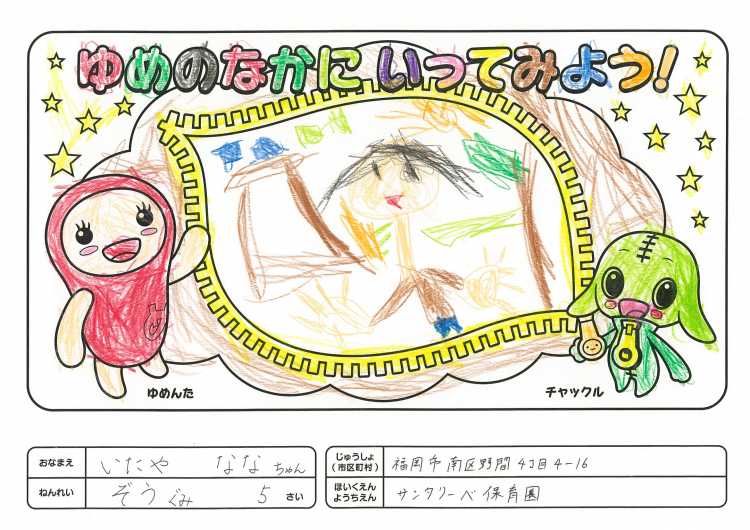 ゆめのなかに いってみよう!
ゆめんた
チャックル
おなまえ いたや なな ちゃん
ねんれい ぞうぐみ 5 さい
じゅうしょ(市区町村) 福岡市南区野間4丁目4-16
ほいくえん ようちえん サンクリーベ保育園